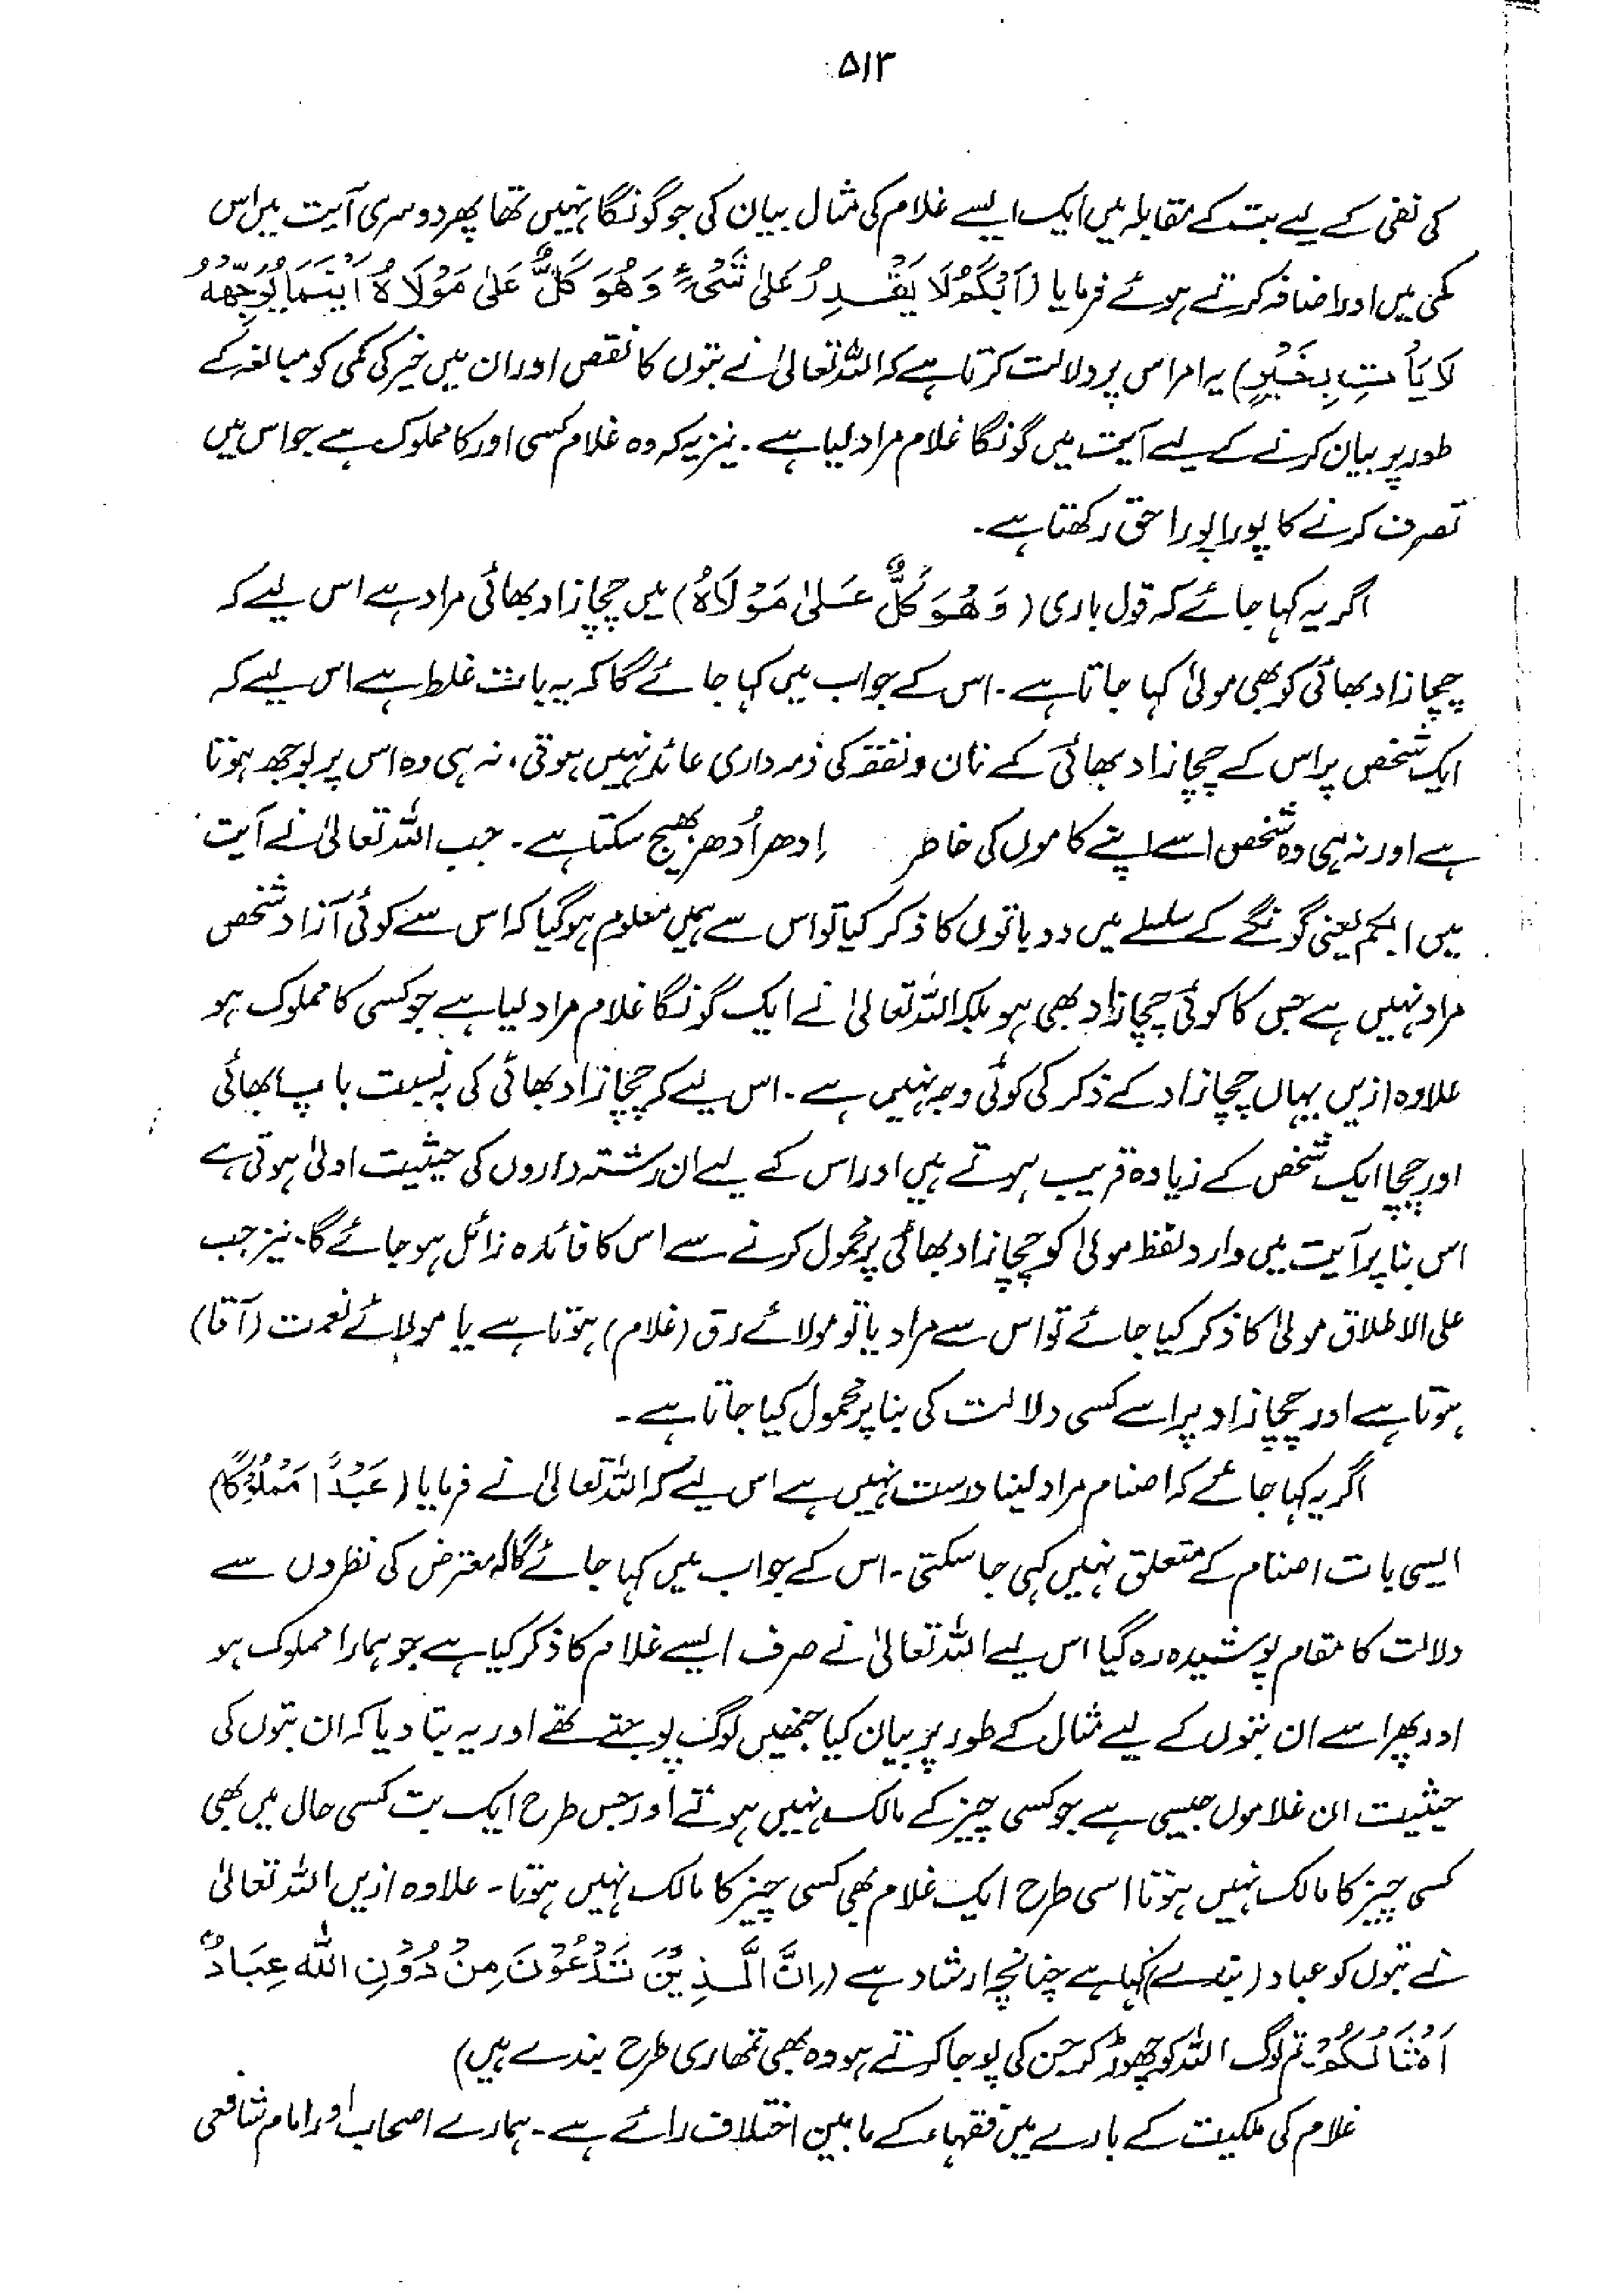 ۵۱۳
کی نفی کے لیے بت کے مقابلہ میں ایک ایسے غلام کی مثال بیان کی جو گونگا نہیں تھا پھر دوسری آیت میں اس
کمی میں اور اضافہ کرتے ہوئے فرمایا (اَبْكَمُ لَا يَقْدِرُ عَلىٰ شَىْءٍ وَهُوَ كَلٌّ عَلىٰ مَوْلَاهُ اَيْنَمَا يُوَجِّهْهُ
لَا يَأْتِ بِخَيْرٍ) یہ امر اس پر دلالت کرتا ہے کہ اللہ تعالیٰ نے بتوں کا نقص اور ان میں خیر کی کمی کو مبالغہ کے
طور پر بیان کرنے کے لیے آیت میں گونگا غلام مراد لیا ہے۔ نیز یہ کہ وہ غلام کسی اور کا مملوک ہے جو اس میں
تصرف کرنے کا پورا پورا حق رکھتا ہے۔
اگر یہ کہا جائے کہ قول باری (وَهُوَ كَلٌّ عَلىٰ مَوْلَاهُ) میں چچازاد بھائی مراد ہے اس لیے کہ
چچازاد بھائی کو بھی مولیٰ کہا جاتا ہے۔ اس کے جواب میں کہا جائے گا کہ یہ بات غلط ہے اس لیے کہ
ایک شخص پر اس کے چچازاد بھائی کے نان و نفقہ کی ذمہ داری عائد نہیں ہوتی، نہ ہی وہ اس پر بوجھ ہوتا
ہے اور نہ ہی وہ شخص اسے اپنے کاموں کی خاطر اِدھر اُدھر بھیج سکتا ہے۔ جب اللہ تعالیٰ نے آیت
میں ابکم یعنی گونگے کے سلسلے میں دو باتوں کا ذکر کیا تو اس سے ہمیں معلوم ہو گیا کہ اس سے کوئی آزاد شخص
مراد نہیں ہے جس کا کوئی چچازاد بھی ہو بلکہ اللہ تعالیٰ نے ایک گونگا غلام مراد لیا ہے جو کسی کا مملوک ہو
علاوہ ازیں یہاں چچازاد کے ذکر کی کوئی وجہ نہیں ہے۔ اس لیے کہ چچازاد بھائی کی بہ نسبت باپ بھائی
اور چچا ایک شخص کے زیادہ قریب ہوتے ہیں اور اس کے لیے ان رشتہ داروں کی حیثیت اولیٰ ہوتی ہے
اس بنا پر آیت میں وارد لفظ مولیٰ کو چچازاد بھائی پر محمول کرنے سے اس کا فائدہ زائل ہو جائے گا۔ نیز جب
علی الاطلاق مولیٰ کا ذکر کیا جائے تو اس سے مراد یا تو مولائے رق (غلام) ہوتا ہے یا مولائے نعمت (آقا)
ہوتا ہے اور چچازاد پر اسے کسی دلالت کی بنا پر محمول کیا جاتا ہے۔
اگر یہ کہا جائے کہ اصنام مراد لینا درست نہیں ہے اس لیے کہ اللہ تعالیٰ نے فرمایا (عَبْدًا مَمْلُوْكًا)
ایسی بات اصنام کے متعلق نہیں کہی جا سکتی۔ اس کے جواب میں کہا جائے گا کہ معترض کی نظروں سے
دلالت کا مقام پوشیدہ رہ گیا اس لیے اللہ تعالیٰ نے صرف ایسے غلام کا ذکر کیا ہے جو ہمارا مملوک ہو
اور پھر اسے ان بتوں کے لیے مثال کے طور پر بیان کیا جنھیں لوگ پوجتے تھے اور یہ بتا دیا کہ ان بتوں کی
حیثیت ان غلاموں جیسی ہے جو کسی چیز کے مالک نہیں ہوتے اور جس طرح ایک بت کسی حال میں بھی
کسی چیز کا مالک نہیں ہوتا اسی طرح ایک غلام بھی کسی چیز کا مالک نہیں ہوتا۔ علاوہ ازیں اللہ تعالیٰ
نے بتوں کو عباد (بندے) کہا ہے چنانچہ ارشاد ہے (اِنَّ الَّذِيْنَ تَدْعُوْنَ مِنْ دُوْنِ اللهِ عِبَادٌ
اَمْثَالُكُمْ۔ تم لوگ اللہ کو چھوڑ کر جن کی پوجا کرتے ہو وہ بھی تمھاری طرح بندے ہیں)
غلام کی ملکیت کے بارے میں فقہاء کے مابین اختلاف رائے ہے۔ ہمارے اصحاب اور امام شافعی